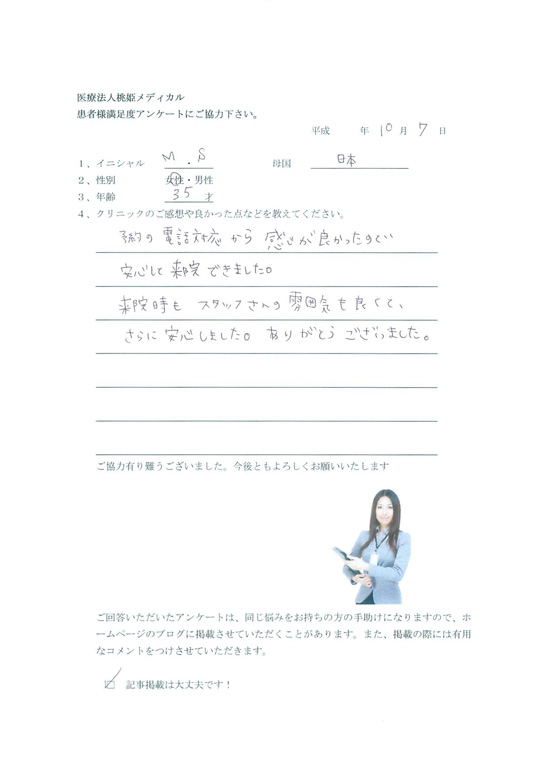 医療法人桃姫メディカル
患者様満足度アンケートにご協力下さい。
平成 年 10 月 7 日
1、イニシャル M . S 母国 日本
2、性別 女性・男性
3、年齢 35 才
4、クリニックのご感想や良かった点などを教えてください。
予約の電話対応から感じが良かったので
安心して来院できました。
来院時もスタッフさんの雰囲気も良くて、
さらに安心しました。ありがとうございました。
ご協力有り難うございました。今後ともよろしくお願いいたします
ご回答いただいたアンケートは、同じ悩みをお持ちの方の手助けになりますので、ホ
ームページのブログに掲載させていただくことがあります。また、掲載の際には有用
なコメントをつけさせていただきます。
☑ 記事掲載は大丈夫です！